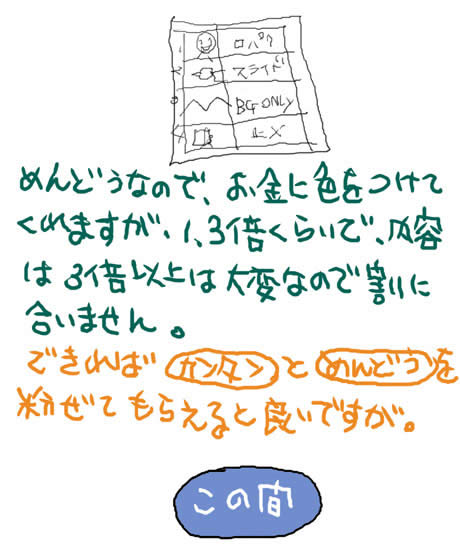 口パク
スライド
BG ONLY
止メ
めんどうなので、お金に色をつけて
くれますが、1、3倍くらいで、内容
は3倍以上は大変なので割に
合いません。
できればカンタンとめんどうを
粉ぜてもらえると良いですが。
この間